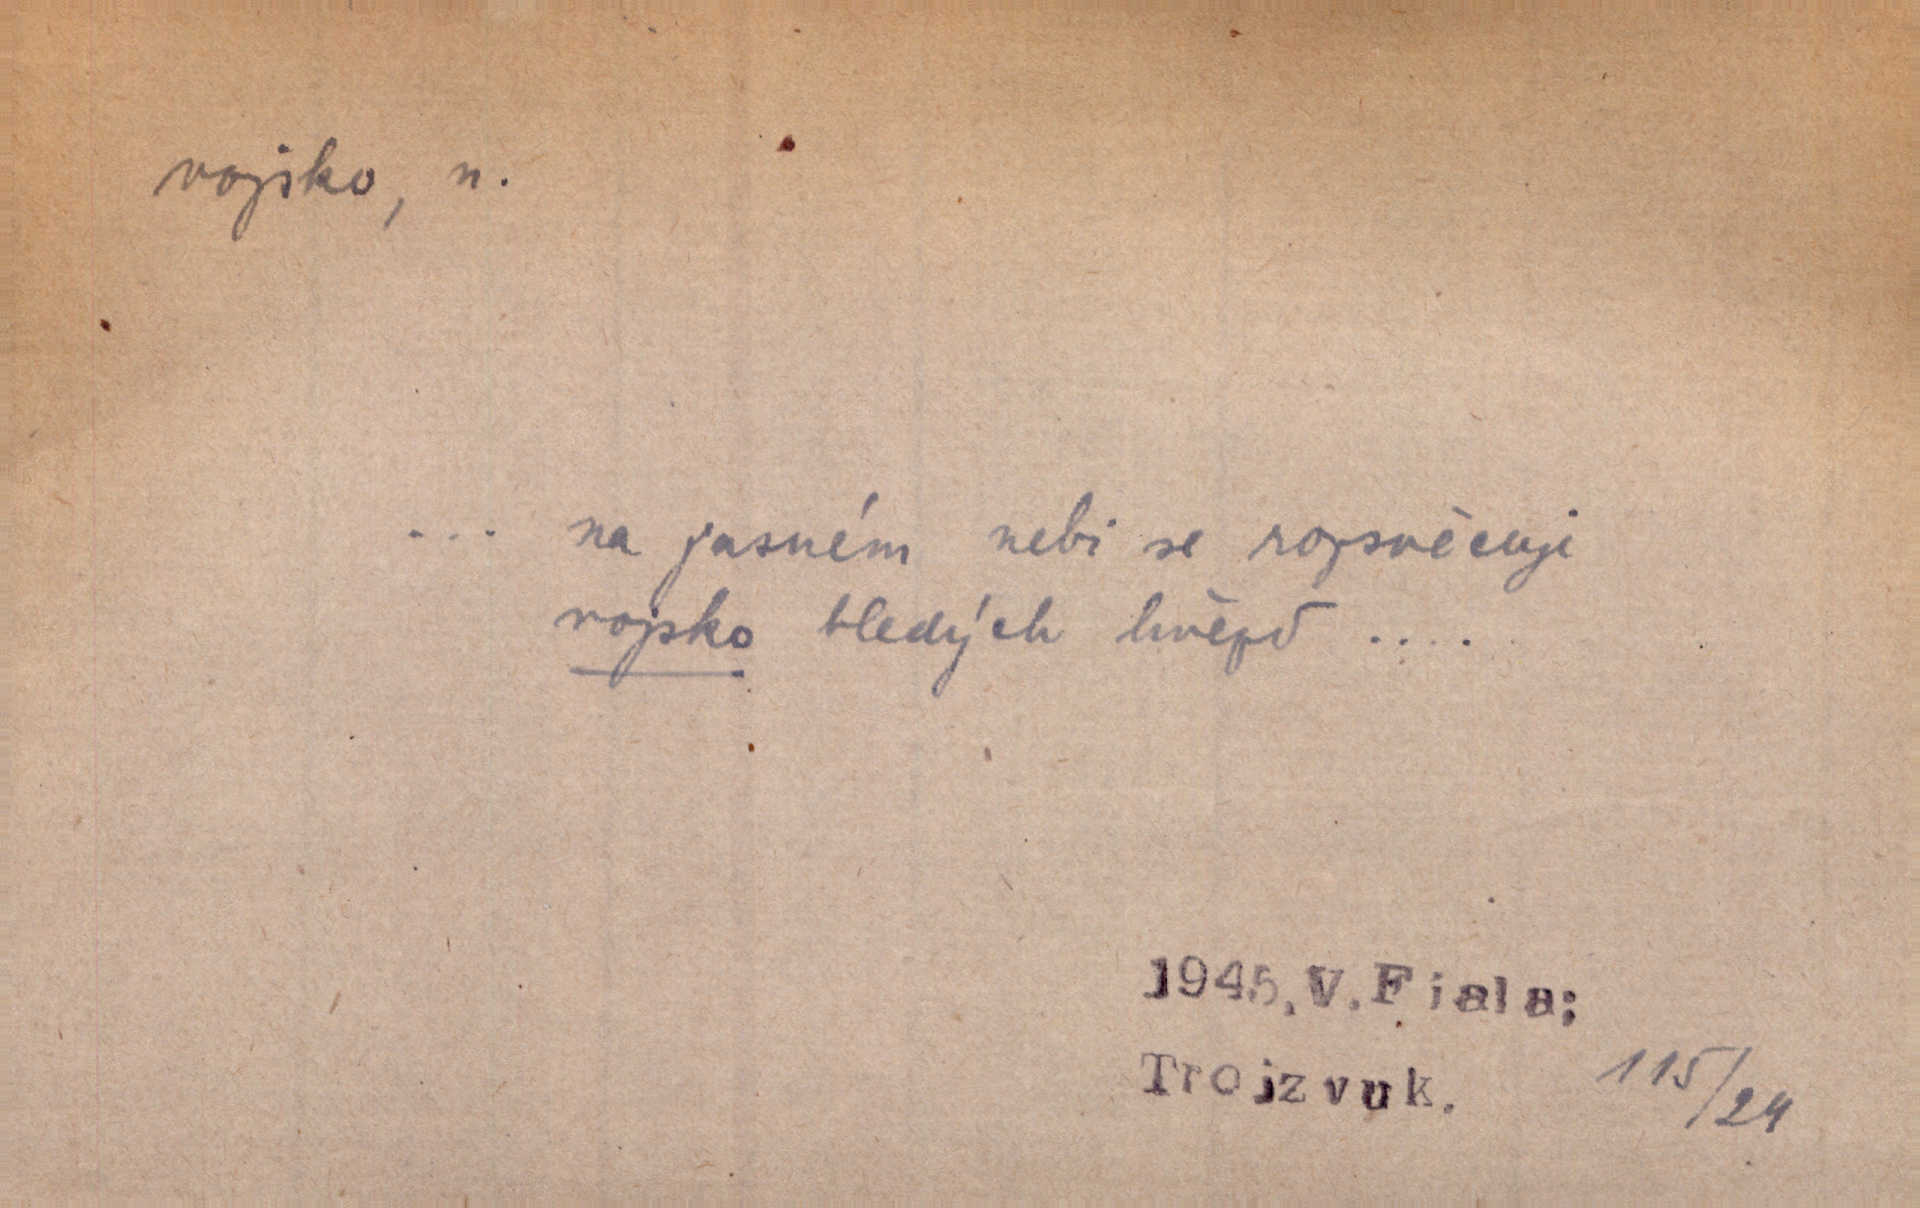 vojsko, n.
... na jasném nebi se rozsvěcuje
vojsko bledých hvězd ....
1945, V. Fiala;
Trojzvuk. 115/24